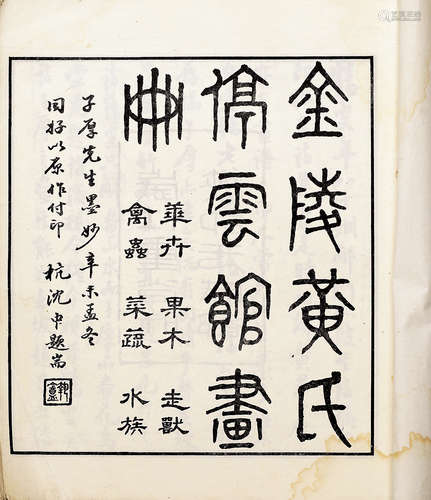 金陵黃氏
停雲館畫
冊
華卉 果木 走獸
禽蟲 菜蔬 水族
子厚先生墨妙辛未孟冬
同好以原作付印 杭沈中題耑